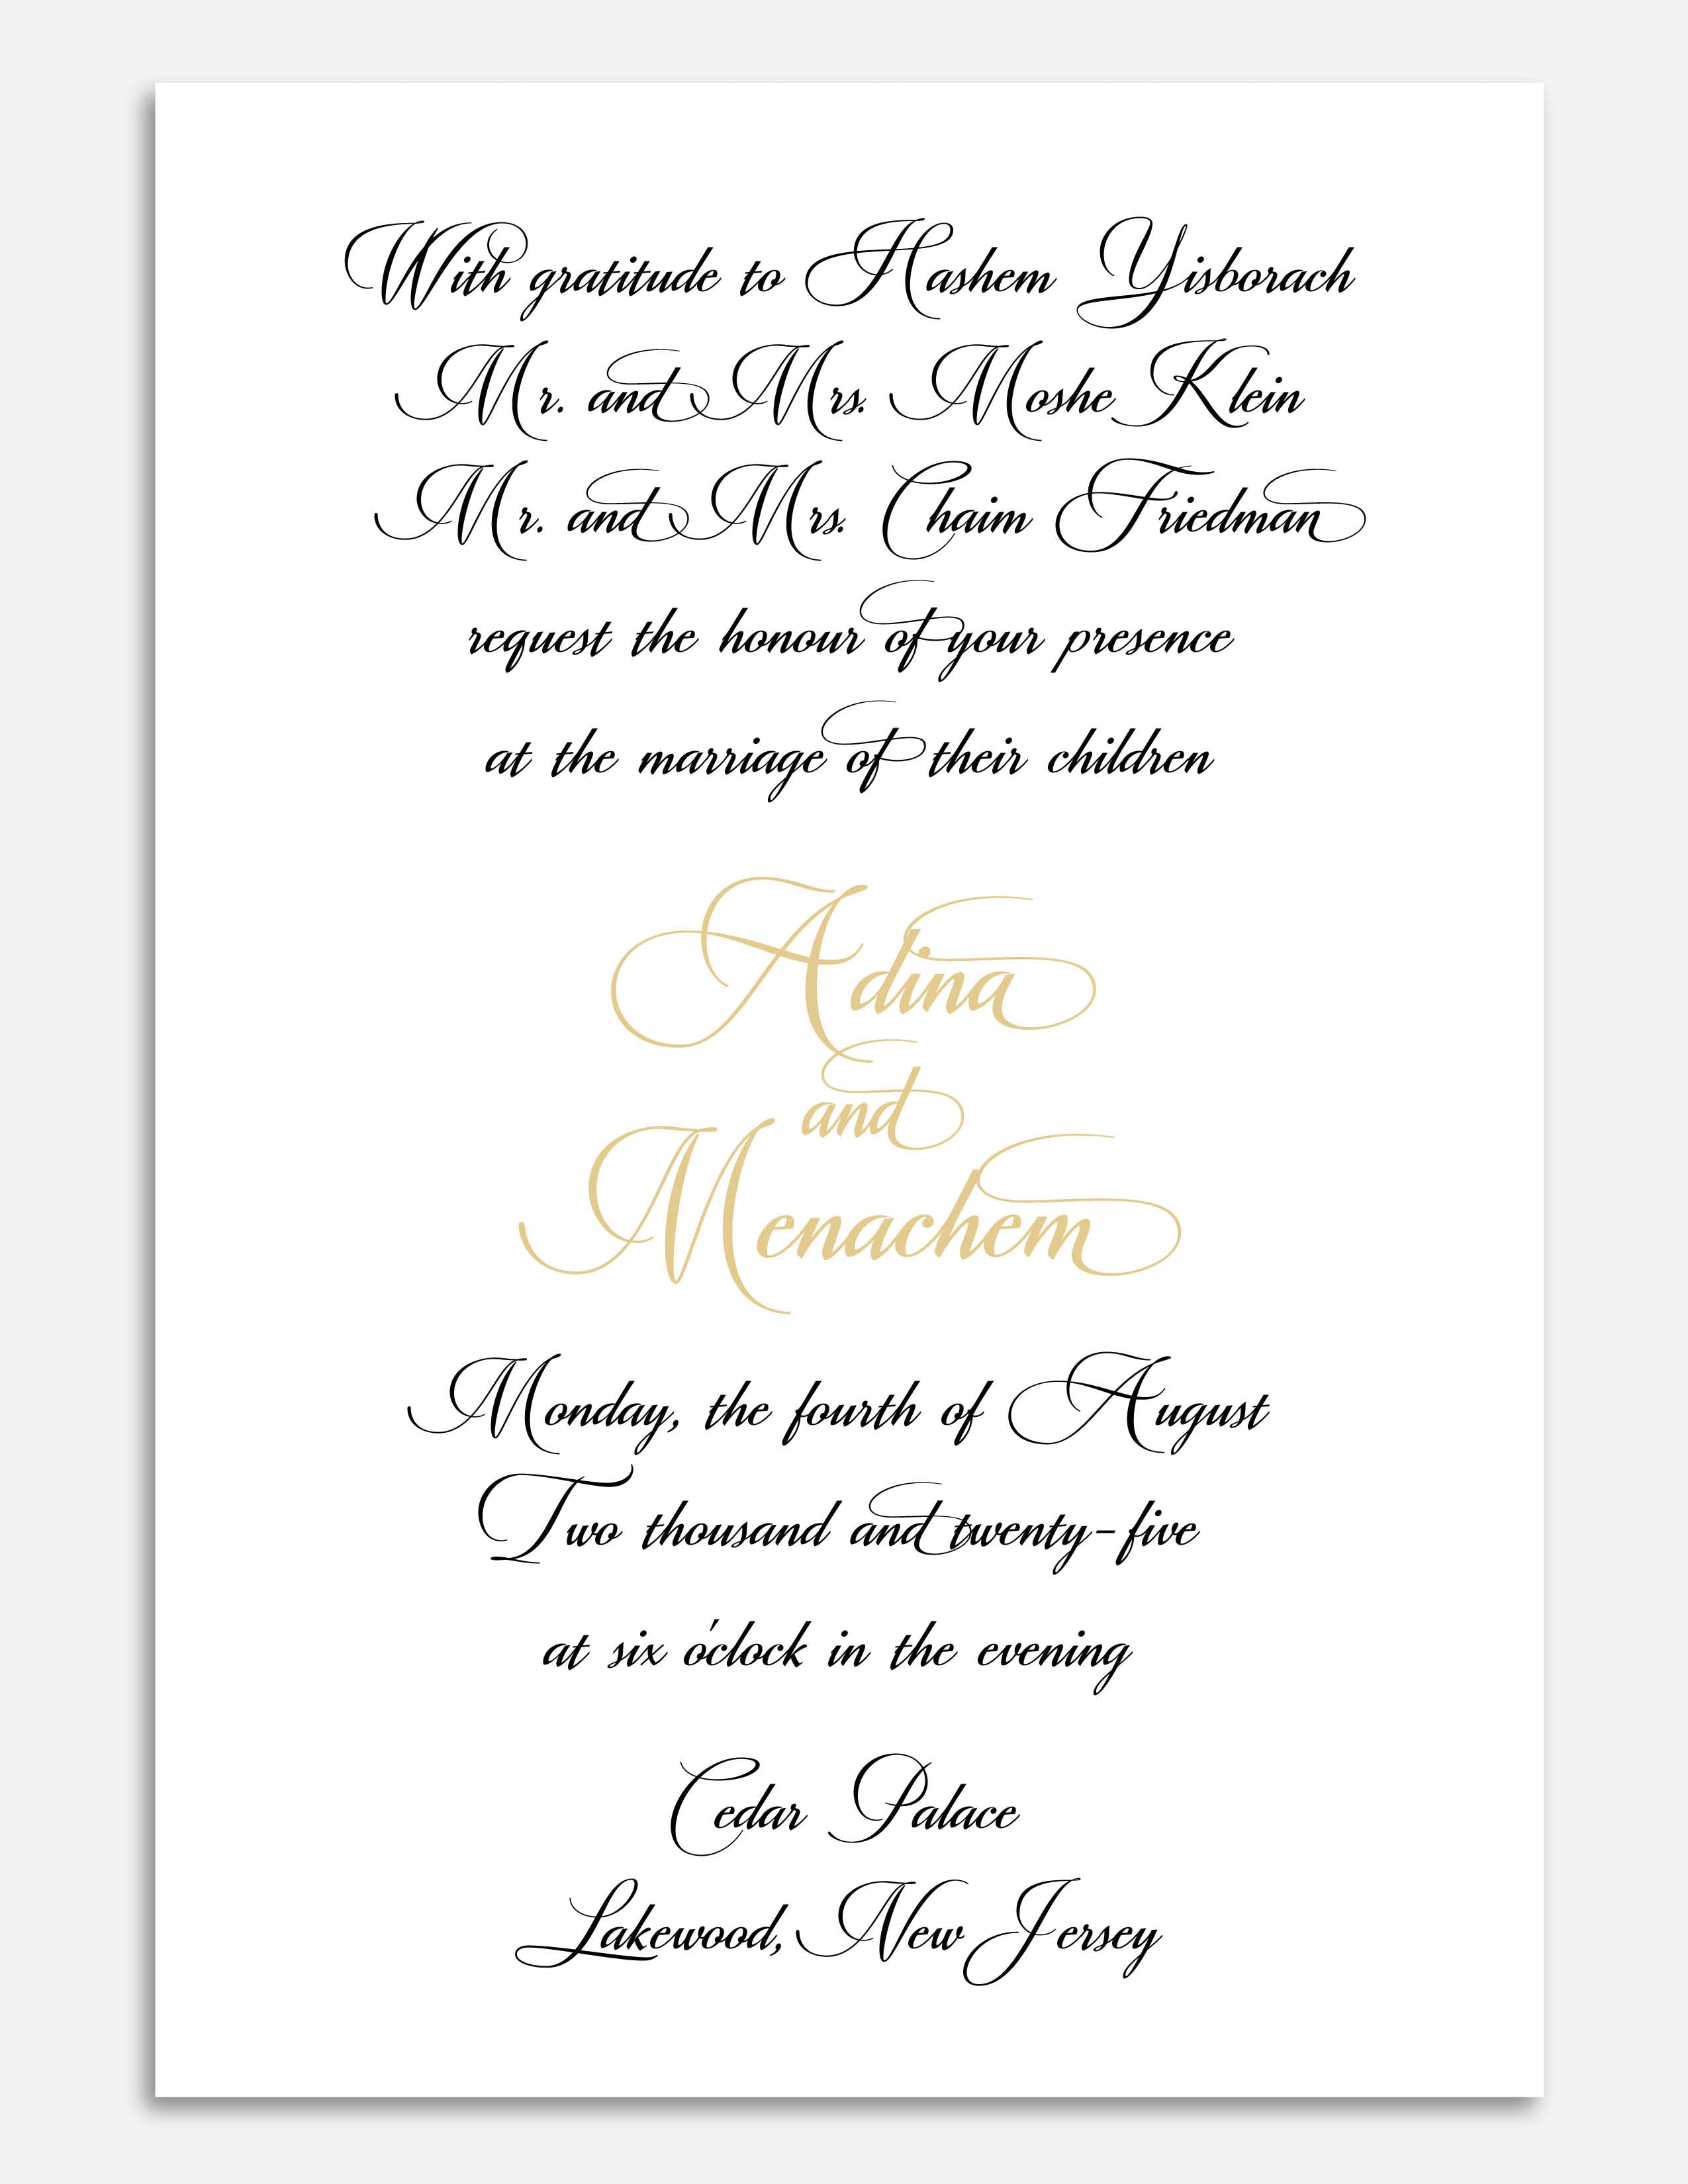 With gratitude to Hashem Yisborach
Mr. and Mrs. Moshe Klein
Mr. and Mrs. Chaim Friedman
request the honour of your presence
at the marriage of their children
Adina
and
Menachem
Monday, the fourth of August
Two thousand and twenty-five
at six o'clock in the evening
Cedar Palace
Lakewood, New Jersey